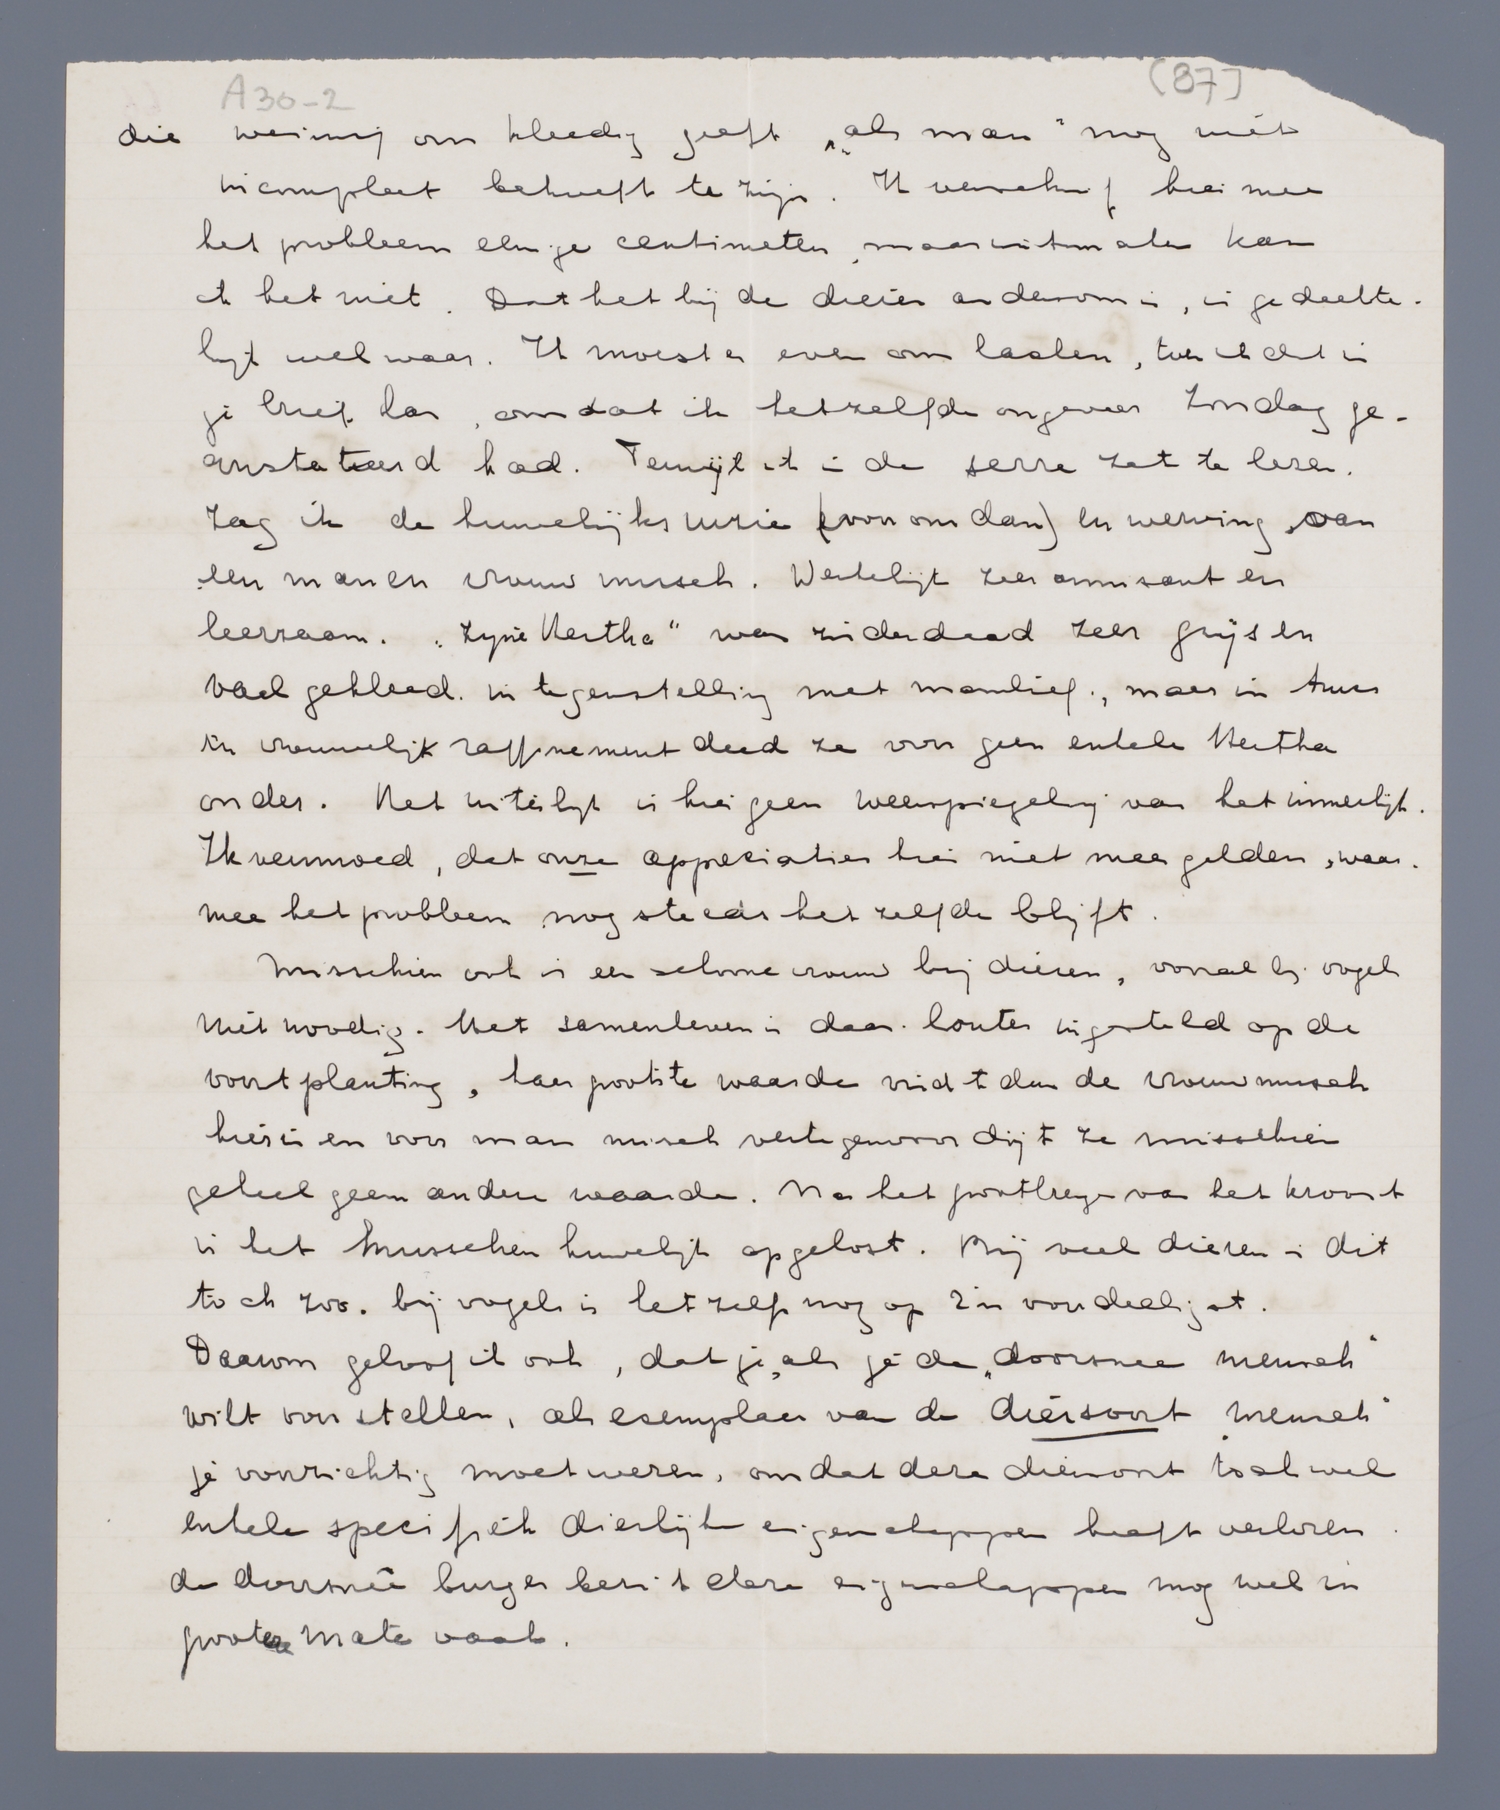 A30-2 (87)
die weinig om kleeding geeft „als man" nog niet
incompleet behoeft te zijn. Ik verschuif hiermee
het probleem eenige centimeters, maar uitmaken kan
ik het niet. Dat het bij de dieren andersom is, is gedeelte-
lijk wel waar. Ik moest er even om lachen, toen ik dat in
je brief las, omdat ik hetzelfde ongeveer Zondag ge-
constateerd had. Terwijl ik in de serre zat te lezen.
Zag ik de huwelijksruzie (voor ons dan) en werving van
een man en vrouw musch. Werkelijk zeer amusant en
leerzaam. „Zijne Hertha" was inderdaad zeer grijs en
vaal gekleed. in tegenstelling met manlief., maar in
in vrouwelijk raffinement deed ze voor geen enkele Hertha
onder. Het uiterlijk is hier geen weerspiegeling van het innerlijk.
Ik vermoed, dat onze appreciaties hier niet meer gelden, waar-
mee het probleem nog steeds het zelfde blijft.
Misschien ook is een schoone vrouw bij dieren, vooral bij vogels
niet noodig. Het samenleven is daar louter ingesteld op de
voortplanting, haar grootste waarde vindt dan de vrouwmusch
hierin en voor man musch vertegenwoordigt ze misschien
geheel geen andere waarde. Na het grootbrengen van het kroost
is het musschen huwelijk opgelost. Bij veel dieren is dit
toch zoo. bij vogels is het zelfs nog op z'n voordeeligst.
Daarom geloof ik ook, dat je, als je de „doorsnee mensch"
wilt voorstellen, als exemplaar van de diersoort „mensch"
je voorzichtig moet wezen, omdat deze diersoort toch wel
enkele specifiek dierlijke eigenschappen heeft verloren.
de doorsnee burger bezit deze eigenschappen nog wel in
grootere mate vaak.